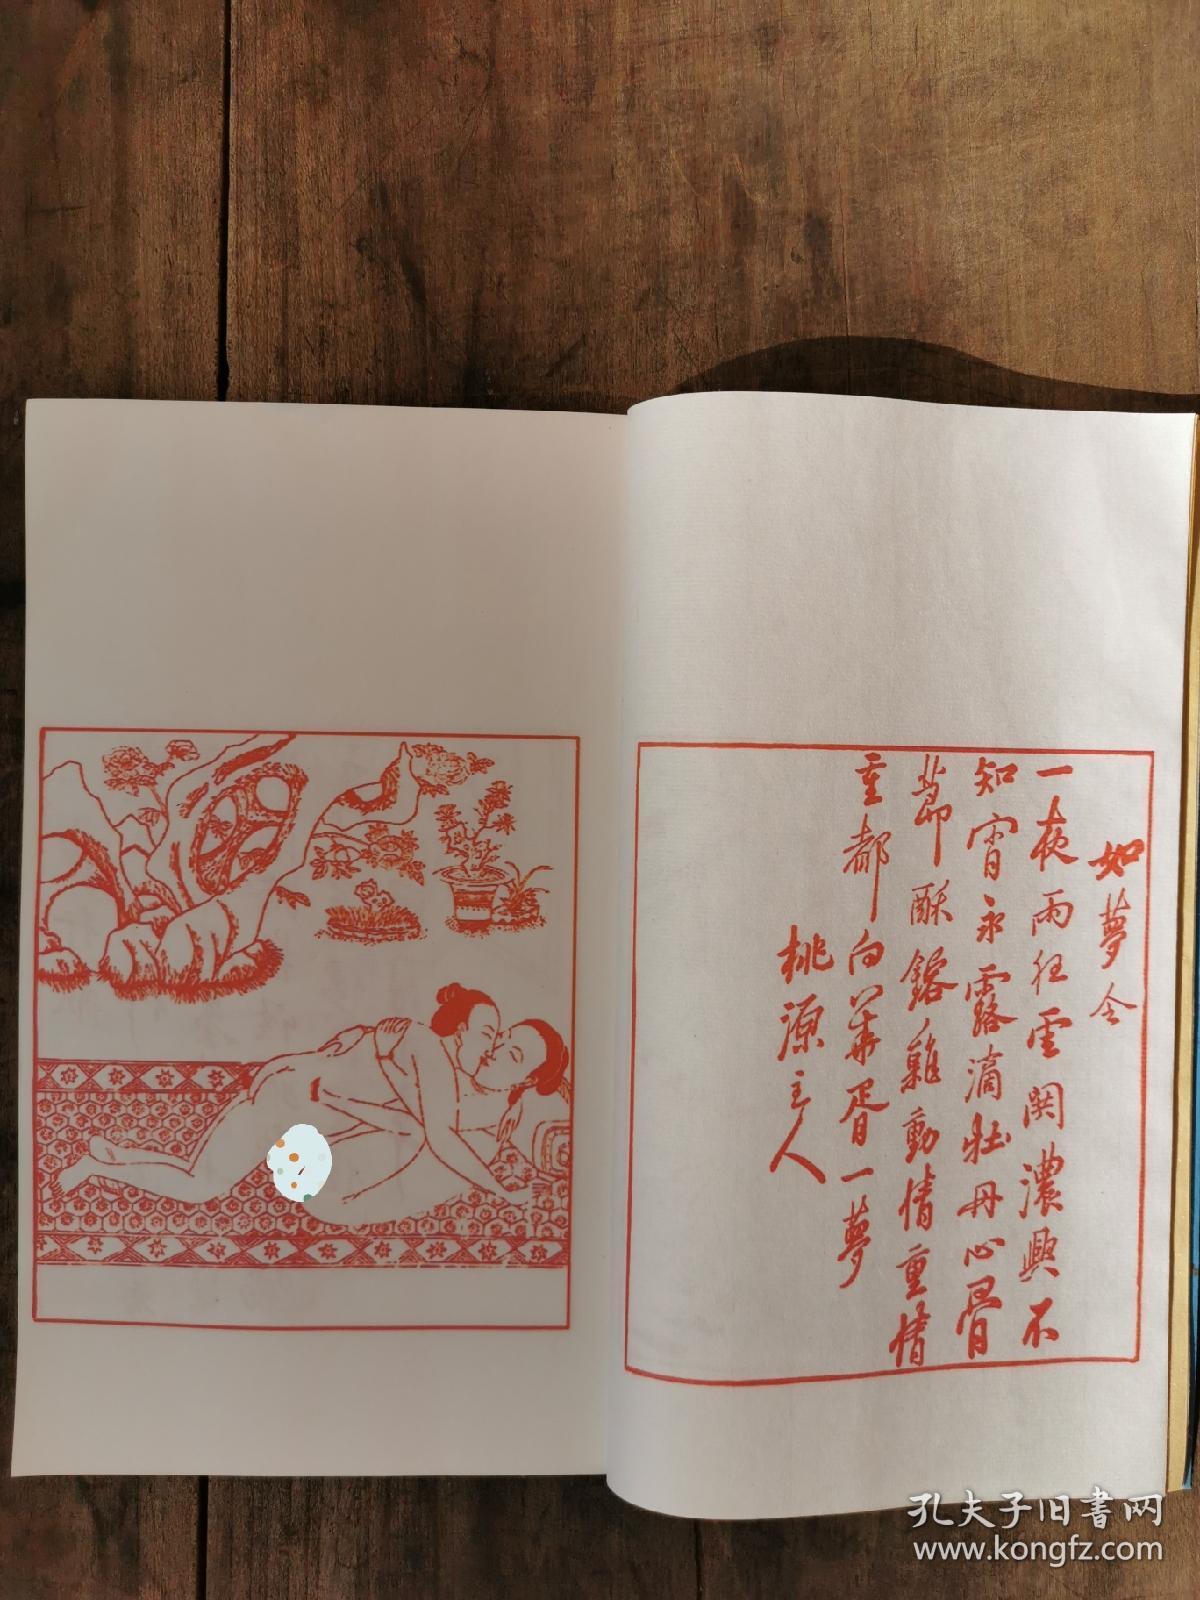 如夢令
一夜雨狂雲閧濃興不
知宵永露滴牡丹心骨
節酥鎔難動情重情
重都向華胥一夢
桃源主人
孔夫子旧書网
www.kongfz.com